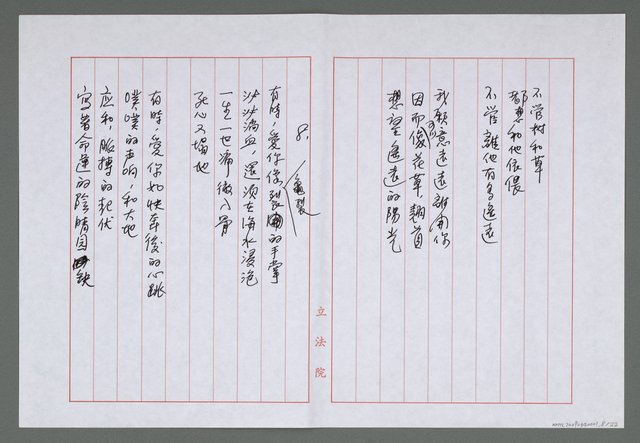 不管树和草
都想和他依偎
不管離他有多遙遠
我願意遠遠離開你
因而可以像花草，翹首
想望遙遠的陽光
8.
有時，愛你像龜裂的手掌
沙沙滴血，還須在海水浸泡
一生一世痛徹入骨
死心又塌地
有時，愛你如快奔後的心跳
噗噗的声响，和大地
应和，脈搏的起伏
寫著命運的陰晴圆缺
立法院